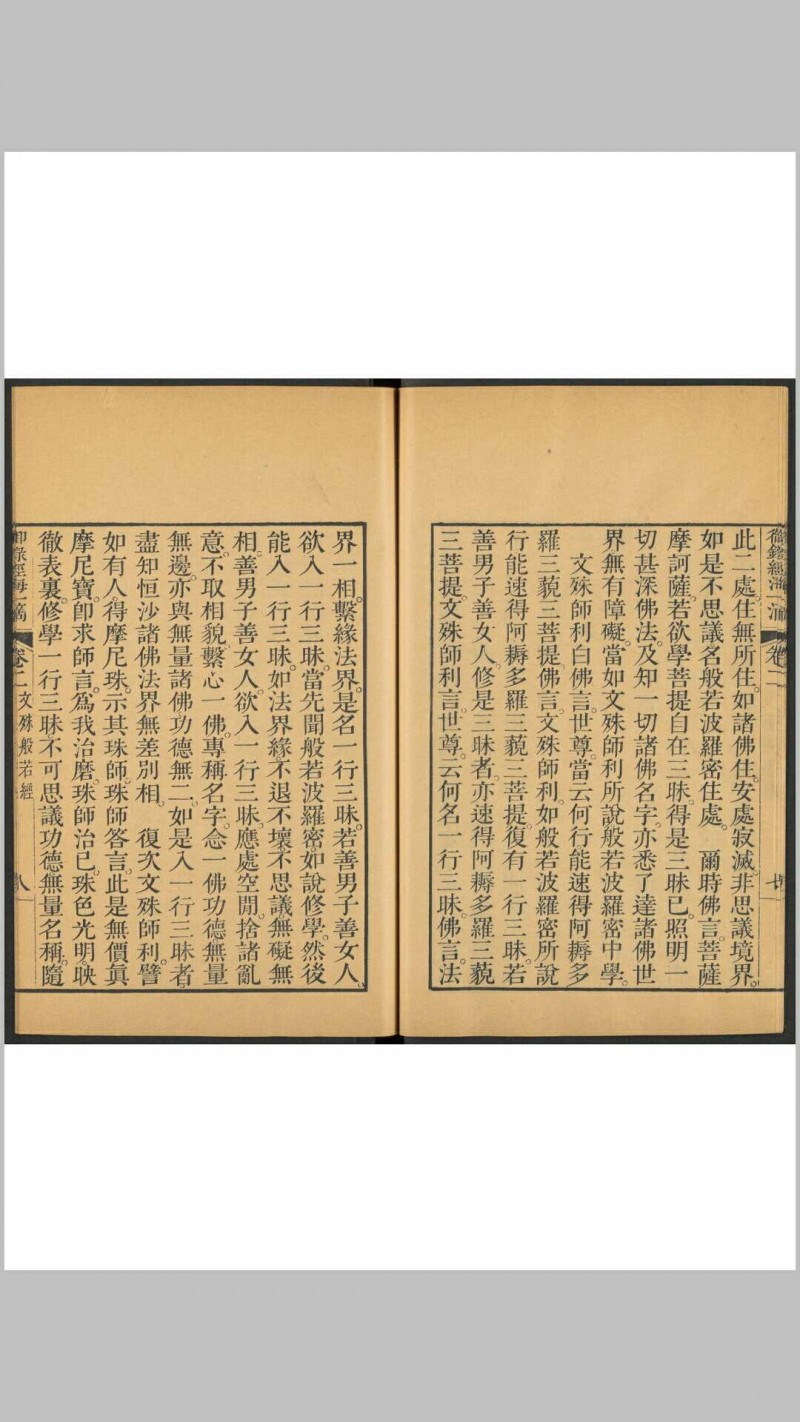 御錄經海一滴
卷二
此二處住無所住。如諸佛住。安處寂滅。非思議境界。
如是不思議名般若波羅密住處。　爾時佛言。菩薩
摩訶薩。若欲學菩提自在三昧。得是三昧已。照明一
切甚深佛法。及知一切諸佛名字。亦悉了達諸佛世
界無有障礙。當如文殊師利所說般若波羅密中學。
文殊師利白佛言。世尊。當云何行能速得阿耨多
羅三藐三菩提。佛言。文殊師利。如般若波羅密所說
行。能速得阿耨多羅三藐三菩提。復有一行三昧。若
善男子善女人。修是三昧者。亦速得阿耨多羅三藐
三菩提。文殊師利言。世尊。云何名一行三昧。佛言。法
界一相。繫緣法界。是名一行三昧。若善男子善女人。
欲入一行三昧。當先聞般若波羅密。如說修學。然後
能入一行三昧。如法界緣。不退不壞不思議無礙無
相。善男子善女人。欲入一行三昧。應處空閒。捨諸亂
意。不取相貌。繫心一佛。專稱名字。念一佛功德無量
無邊。亦與無量諸佛功德無二。如是入一行三昧者。
盡知恒沙諸佛法界無差別相。　復次文殊師利。譬
如有人。得摩尼珠。示其珠師。珠師答言。此是無價眞
摩尼寶。卽求師言。爲我治磨。珠師治已。珠色光明。映
徹表裏。修學一行三昧。不可思議功德無量名稱。隨
御錄經海一滴
卷二
文殊般若經
八